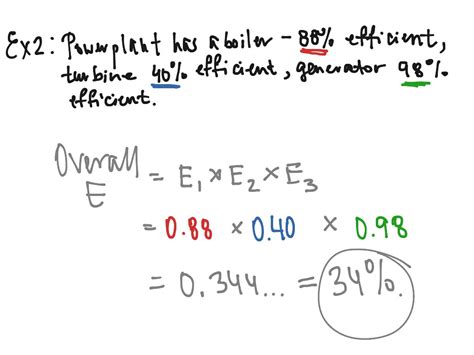 Ex2: Powerplant has a boiler - 88% efficient,
turbine 40% efficient, generator 98%
efficient.
Overall E = E1 × E2 × E3
= 0.88 × 0.40 × 0.98
= 0.344... = 34%.